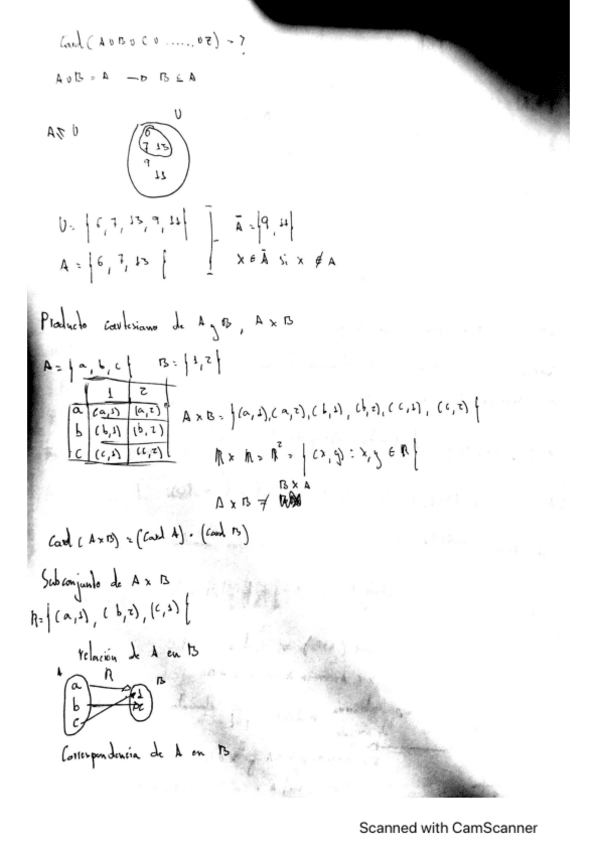 Card(A∪B∪C∪......∪Z) = ?
A∪B = A → B ⊆ A
U
A ⊆ U
6
7 13
9
11
U = {6, 7, 13, 9, 11}
Ā = {9, 11}
A = {6, 7, 13}
x ∈ Ā si x ∉ A
Producto cartesiano de A y B, A x B
A = {a, b, c} B = {1, 2}
1 2
a (a,1) (a,2)
b (b,1) (b,2)
c (c,1) (c,2)
A x B = {(a,1), (a,2), (b,1), (b,2), (c,1), (c,2)}
R x R = R² = {(x,y) : x, y ∈ R}
A x B ≠ B x A
Card(A x B) = (Card A) · (Card B)
Subconjunto de A x B
R = {(a,1), (b,2), (c,1)}
relación de A en B
A R B
a 1
b 2
c
Correspondencia de A en B
Scanned with CamScanner